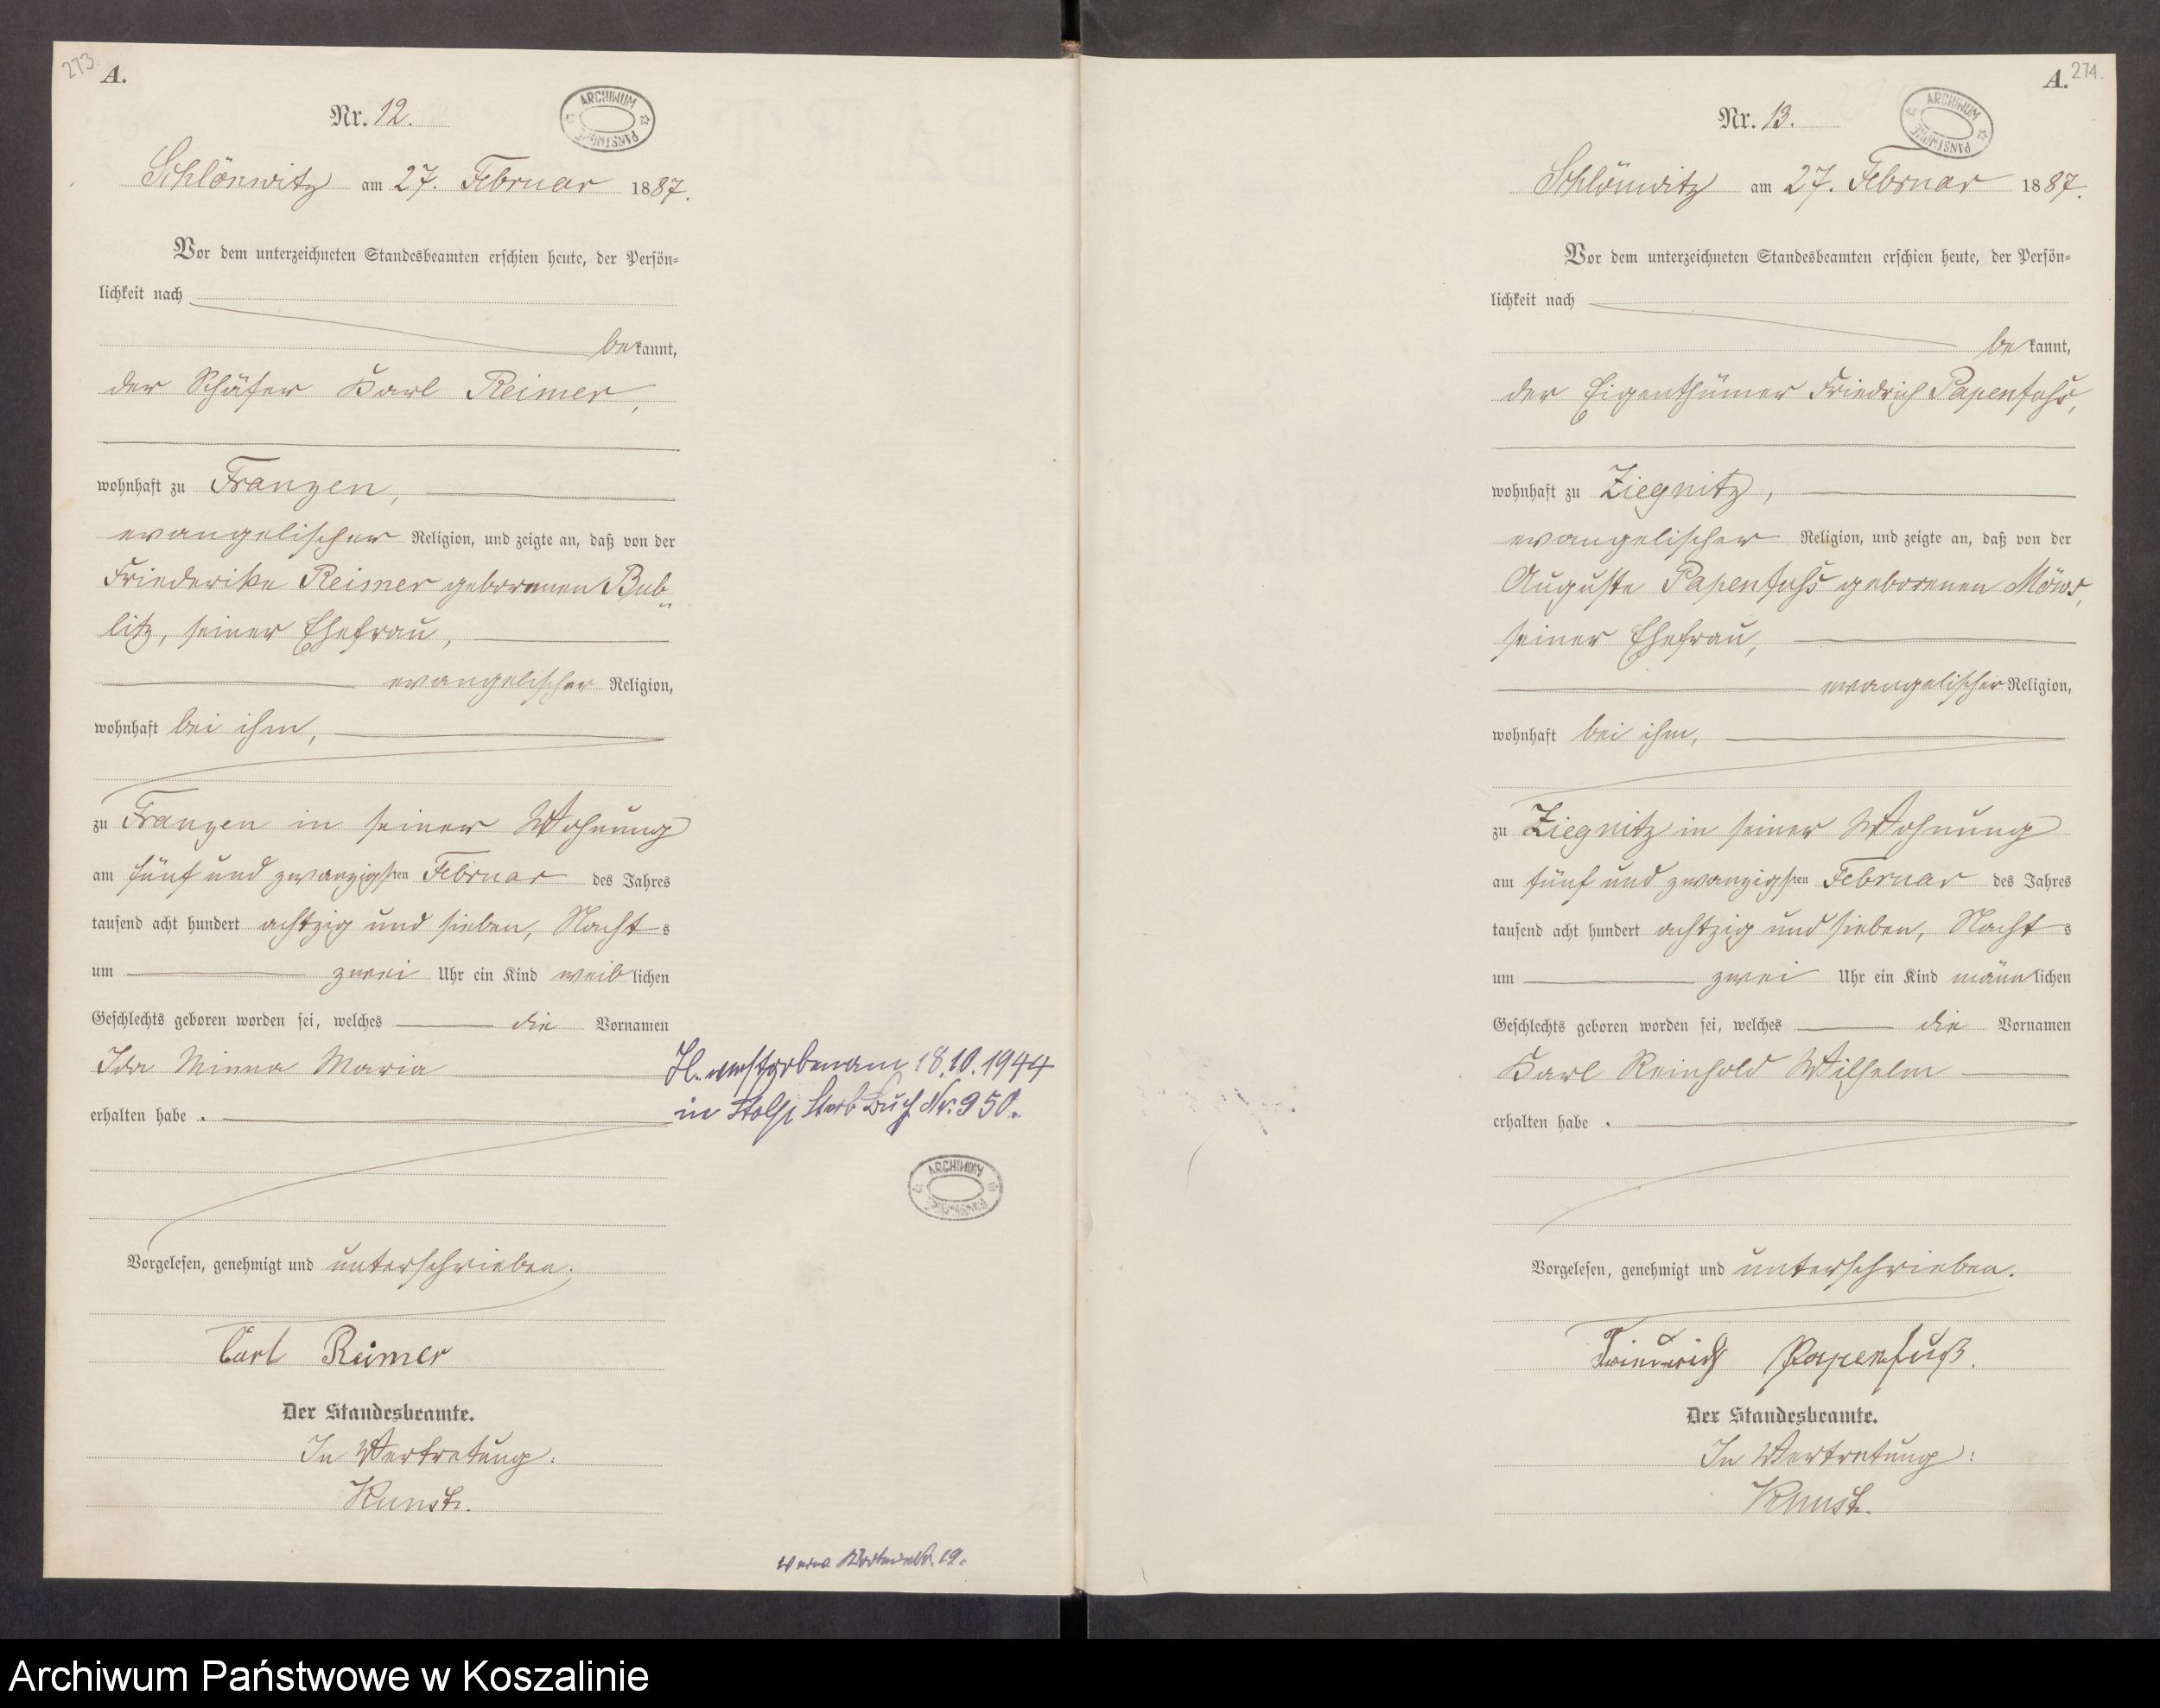 273.
A.
Nr. 12.
ARCHIWUM PAŃSTWOWE
Schlönwitz am 27. Februar 1887.
Vor dem unterzeichneten Standesbeamten erschien heute, der Persön-
lichkeit nach
bekannt,
der Schäfer Karl Reimer,
wohnhaft zu Franzen,
evangelischer Religion, und zeigte an, daß von der
Friederike Reimer geborenen Bub-
litz, seiner Ehefrau,
evangelischer Religion,
wohnhaft bei ihm,
zu Franzen in seiner Wohnung
am fünf und zwanzigsten Februar des Jahres
tausend acht hundert achtzig und sieben, Nachts
um zwei Uhr ein Kind weiblichen
Geschlechts geboren worden sei, welches die Vornamen
Ida Minna Maria
erhalten habe.
H. verstorben am 18.10.1944
in Stolp Sterb Buch Nr. 950.
ARCHIWUM PAŃSTWOWE
Vorgelesen, genehmigt und unterschrieben.
Carl Reimer
Der Standesbeamte.
In Vertretung:
Kunst.
19.
A.
274.
Nr. 13.
ARCHIWUM PAŃSTWOWE
Schlönwitz am 27. Februar 1887.
Vor dem unterzeichneten Standesbeamten erschien heute, der Persön-
lichkeit nach
bekannt,
der Eigenthümer Friedrich Papenfuhs,
wohnhaft zu Ziegnitz,
evangelischer Religion, und zeigte an, daß von der
Auguste Papenfuhs geborenen Möws,
seiner Ehefrau,
evangelischer Religion,
wohnhaft bei ihm,
zu Ziegnitz in seiner Wohnung
am fünf und zwanzigsten Februar des Jahres
tausend acht hundert achtzig und sieben, Nachts
um zwei Uhr ein Kind männlichen
Geschlechts geboren worden sei, welches die Vornamen
Karl Reinhold Wilhelm
erhalten habe.
Vorgelesen, genehmigt und unterschrieben.
Friedrich Papenfuß.
Der Standesbeamte.
In Vertretung:
Kunst.
Archiwum Państwowe w Koszalinie